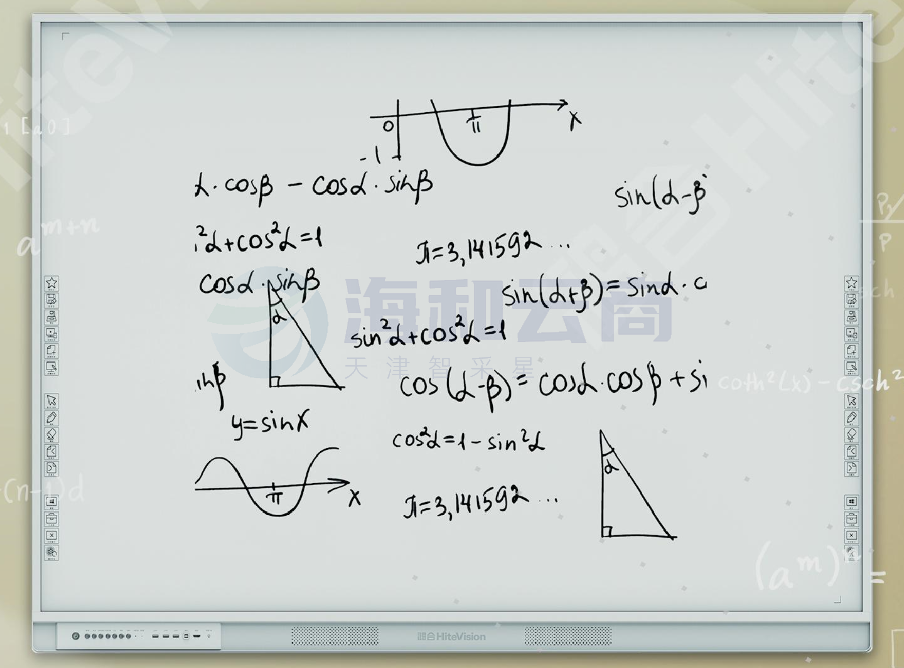 0
π
x
-1
α·cosβ - cosα·sinβ
sin(α-β)
²α+cos²α=1
π=3,141592...
cosα·sinβ
sin(α+β)=sinα·c
α
海和云商
sin²α+cos²α=1
天津智采星
inβ
cos(α-β)=cosα·cosβ+si
coth²(x)-csch²
y=sinx
cos²α=1-sin²α
α
π
x
π=3,141592...
a^{m+n}
(n-1)d
(a^m)^n=
HiteVision